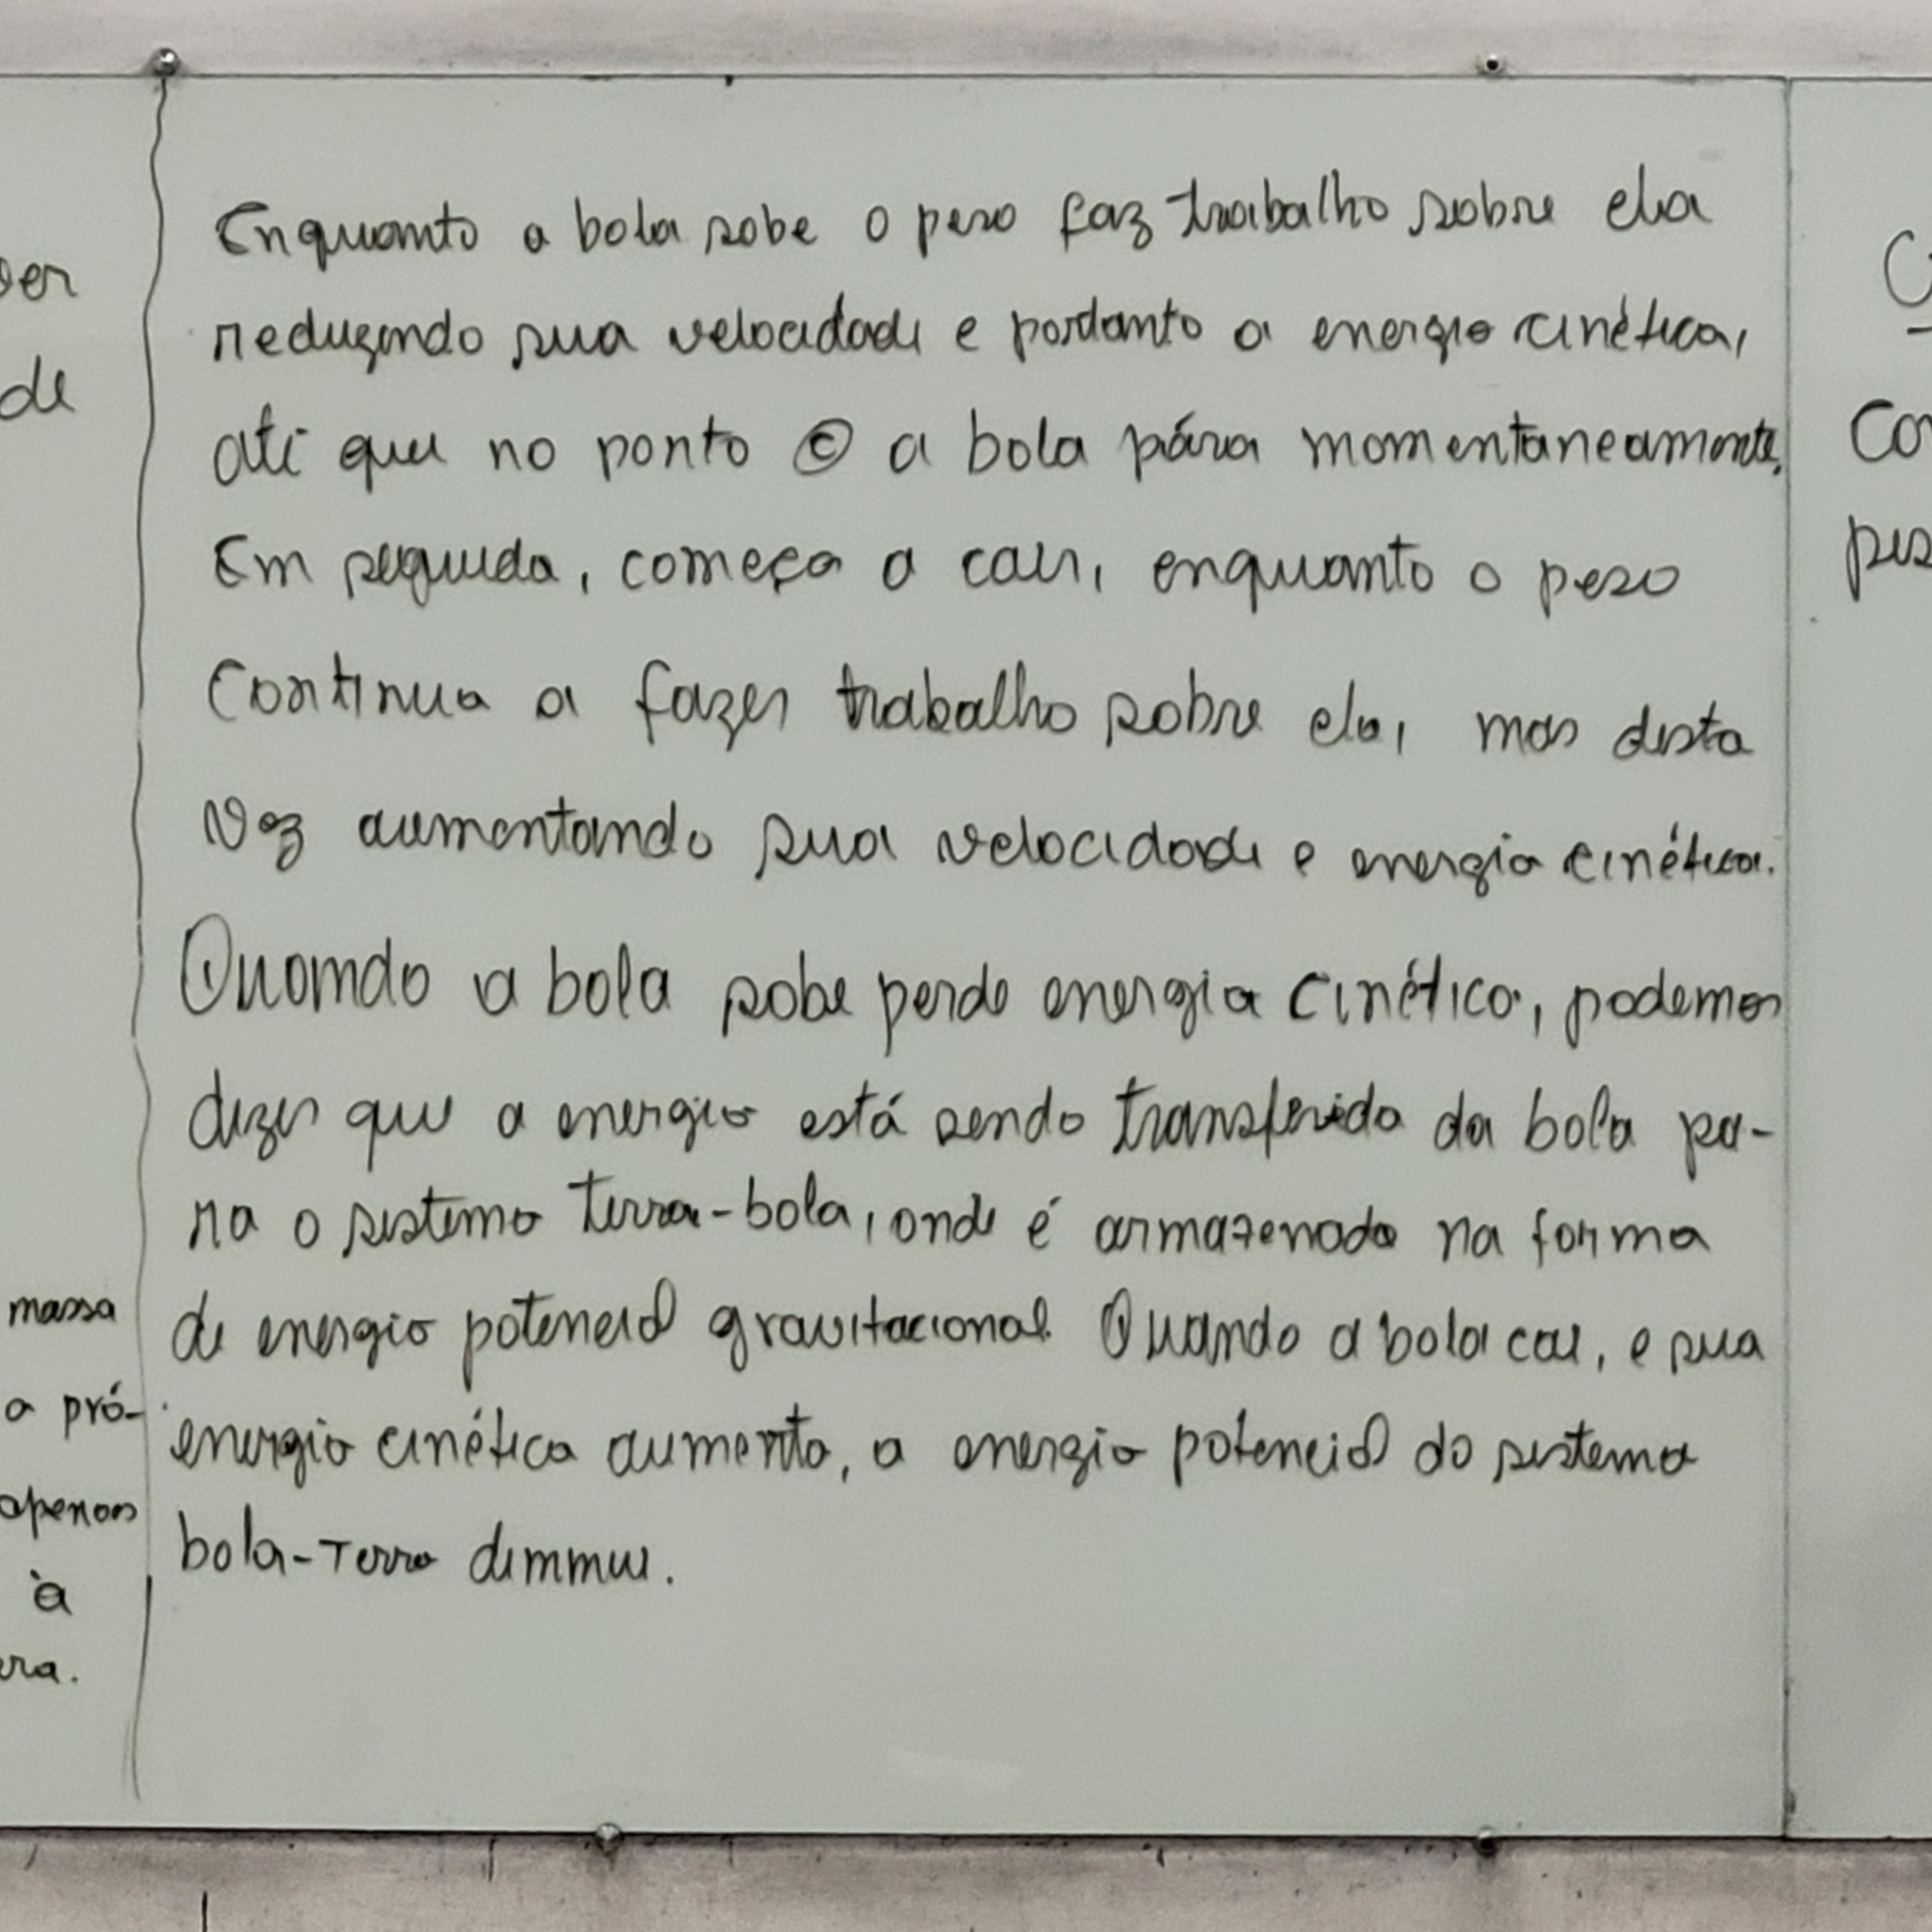 Enquanto a bola sobe o peso faz trabalho sobre ela
reduzindo sua velocidade e portanto a energia cinética,
até que no ponto © a bola pára momentaneamente.
Em seguida, começa a cair, enquanto o peso
continua a fazer trabalho sobre ela, mas desta
vez aumentando sua velocidade e energia cinética.
Quando a bola sobe perde energia cinética, podemos
dizer que a energia está sendo transferida da bola pa-
ra o sistema terra-bola, onde é armazenada na forma
de energia potencial gravitacional. Quando a bola cai, e sua
energia cinética aumenta, a energia potencial do sistema
bola-Terra diminui.
de
massa
a pró-
apenas
à